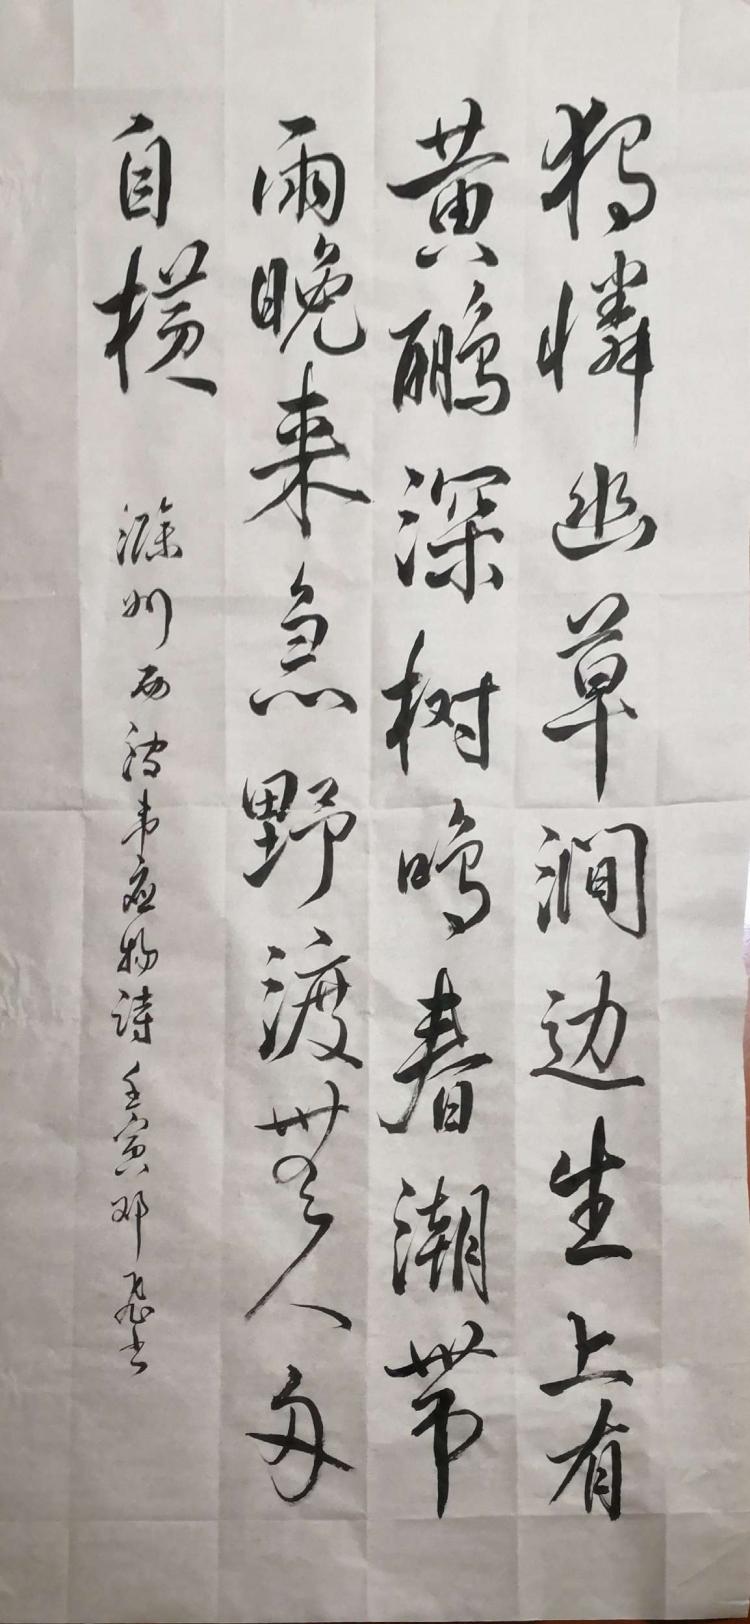 獨憐幽草涧边生上有
黄鹂深树鸣春潮带
雨晚来急野渡無人舟
自横 滁州西涧韦应物诗 壬寅邓飛书